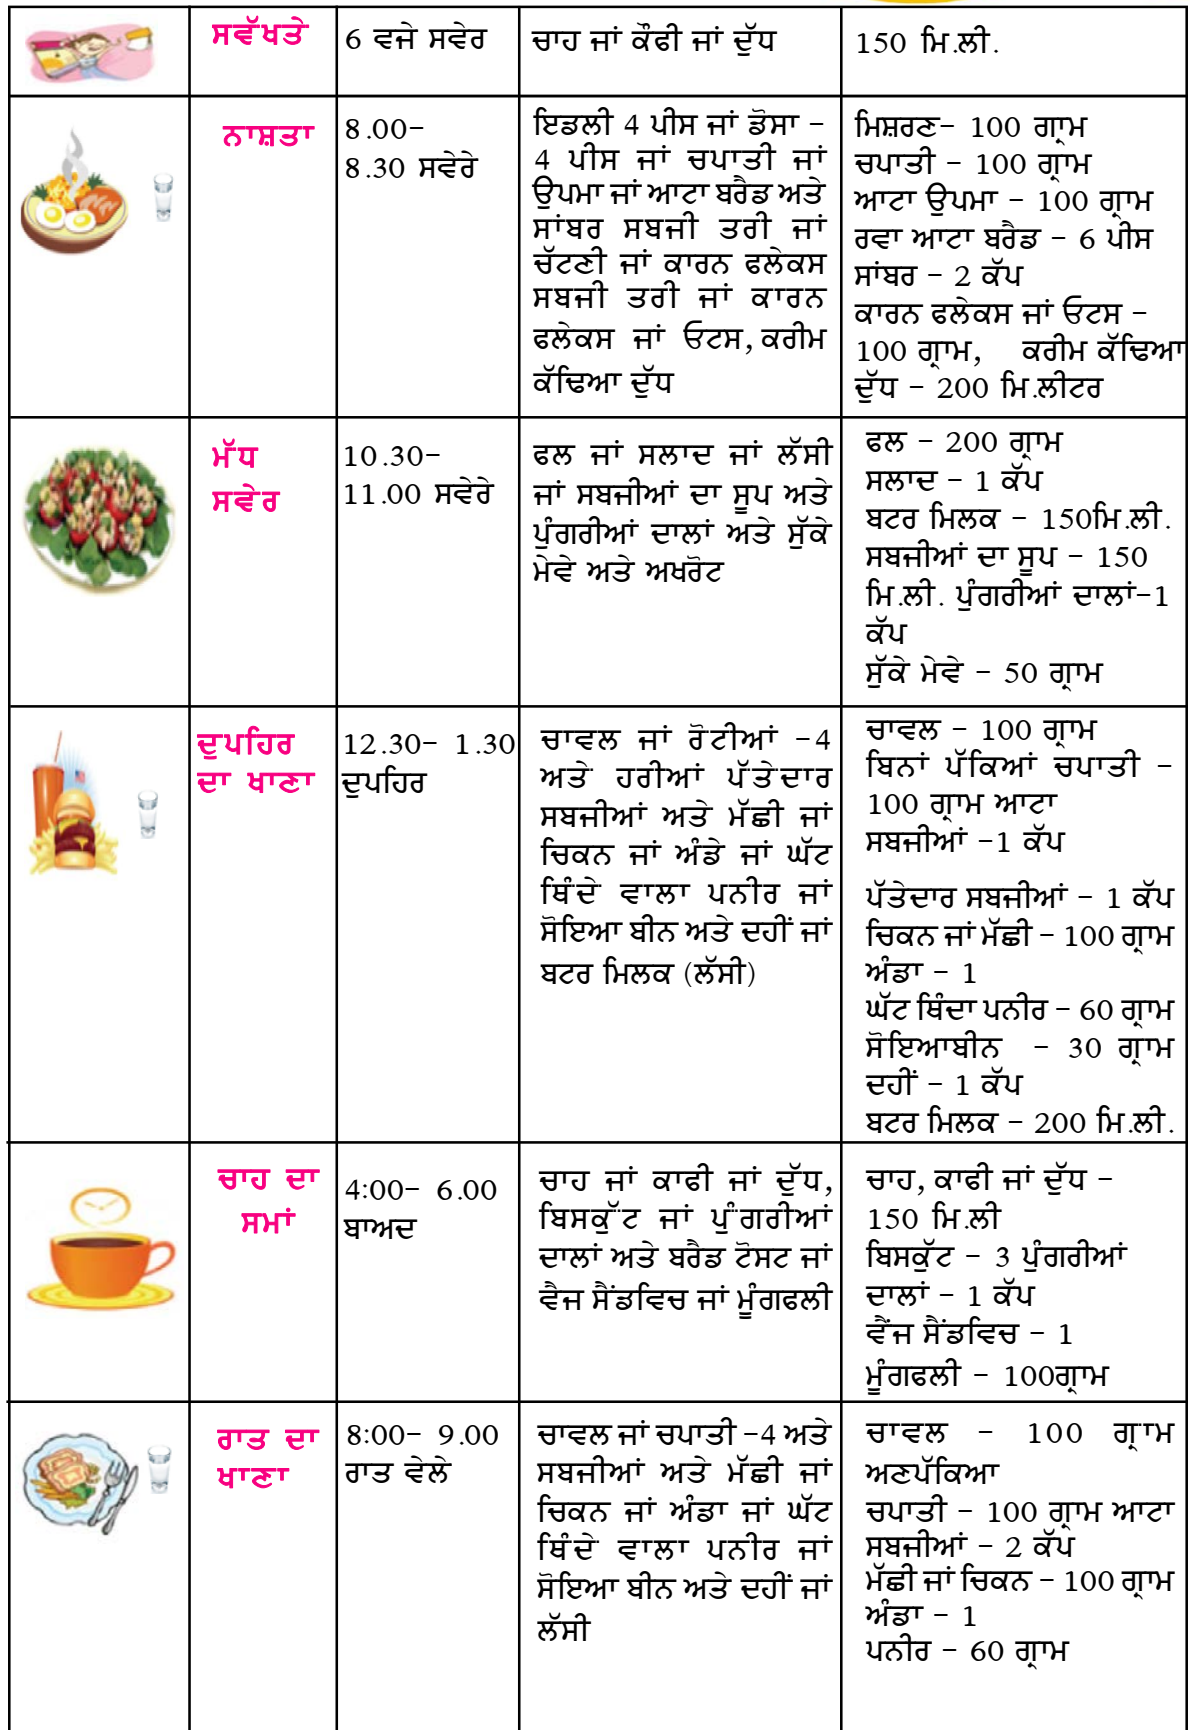 ਸਵੱਖਤੇ
6 ਵਜੇ ਸਵੇਰ
ਚਾਹ ਜਾਂ ਕੌਫੀ ਜਾਂ ਦੁੱਧ
150 ਮਿ.ਲੀ.
ਨਾਸ਼ਤਾ
8.00-
8.30 ਸਵੇਰੇ
ਇਡਲੀ 4 ਪੀਸ ਜਾਂ ਡੋਸਾ -
4 ਪੀਸ ਜਾਂ ਚਪਾਤੀ ਜਾਂ
ਉਪਮਾ ਜਾਂ ਆਟਾ ਬਰੈਡ ਅਤੇ
ਸਾਂਬਰ ਸਬਜੀ ਤਰੀ ਜਾਂ
ਚੱਟਣੀ ਜਾਂ ਕਾਰਨ ਫਲੇਕਸ
ਸਬਜੀ ਤਰੀ ਜਾਂ ਕਾਰਨ
ਫਲੇਕਸ ਜਾਂ ਓਟਸ, ਕਰੀਮ
ਕੱਢਿਆ ਦੁੱਧ
ਮਿਸ਼ਰਣ- 100 ਗ੍ਰਾਮ
ਚਪਾਤੀ - 100 ਗ੍ਰਾਮ
ਆਟਾ ਉਪਮਾ - 100 ਗ੍ਰਾਮ
ਰਵਾ ਆਟਾ ਬਰੈਡ - 6 ਪੀਸ
ਸਾਂਬਰ - 2 ਕੱਪ
ਕਾਰਨ ਫਲੇਕਸ ਜਾਂ ਓਟਸ -
100 ਗ੍ਰਾਮ, ਕਰੀਮ ਕੱਢਿਆ
ਦੁੱਧ - 200 ਮਿ.ਲੀਟਰ
ਮੱਧ
ਸਵੇਰ
10.30-
11.00 ਸਵੇਰੇ
ਫਲ ਜਾਂ ਸਲਾਦ ਜਾਂ ਲੱਸੀ
ਜਾਂ ਸਬਜੀਆਂ ਦਾ ਸੂਪ ਅਤੇ
ਪੁੰਗਰੀਆਂ ਦਾਲਾਂ ਅਤੇ ਸੁੱਕੇ
ਮੇਵੇ ਅਤੇ ਅਖਰੋਟ
ਫਲ - 200 ਗ੍ਰਾਮ
ਸਲਾਦ - 1 ਕੱਪ
ਬਟਰ ਮਿਲਕ - 150ਮਿ.ਲੀ.
ਸਬਜੀਆਂ ਦਾ ਸੂਪ - 150
ਮਿ.ਲੀ. ਪੁੰਗਰੀਆਂ ਦਾਲਾਂ-1
ਕੱਪ
ਸੁੱਕੇ ਮੇਵੇ - 50 ਗ੍ਰਾਮ
ਦੁਪਹਿਰ
ਦਾ ਖਾਣਾ
12.30- 1.30
ਦੁਪਹਿਰ
ਚਾਵਲ ਜਾਂ ਰੋਟੀਆਂ -4
ਅਤੇ ਹਰੀਆਂ ਪੱਤੇਦਾਰ
ਸਬਜੀਆਂ ਅਤੇ ਮੱਛੀ ਜਾਂ
ਚਿਕਨ ਜਾਂ ਅੰਡੇ ਜਾਂ ਘੱਟ
ਥਿੰਦੇ ਵਾਲਾ ਪਨੀਰ ਜਾਂ
ਸੋਇਆ ਬੀਨ ਅਤੇ ਦਹੀਂ ਜਾਂ
ਬਟਰ ਮਿਲਕ (ਲੱਸੀ)
ਚਾਵਲ - 100 ਗ੍ਰਾਮ
ਬਿਨਾਂ ਪੱਕਿਆਂ ਚਪਾਤੀ -
100 ਗ੍ਰਾਮ ਆਟਾ
ਸਬਜੀਆਂ -1 ਕੱਪ
ਪੱਤੇਦਾਰ ਸਬਜੀਆਂ - 1 ਕੱਪ
ਚਿਕਨ ਜਾਂ ਮੱਛੀ - 100 ਗ੍ਰਾਮ
ਅੰਡਾ - 1
ਘੱਟ ਥਿੰਦਾ ਪਨੀਰ - 60 ਗ੍ਰਾਮ
ਸੋਇਆਬੀਨ - 30 ਗ੍ਰਾਮ
ਦਹੀਂ - 1 ਕੱਪ
ਬਟਰ ਮਿਲਕ - 200 ਮਿ.ਲੀ.
ਚਾਹ ਦਾ
ਸਮਾਂ
4:00- 6.00
ਬਾਅਦ
ਚਾਹ ਜਾਂ ਕਾਫੀ ਜਾਂ ਦੁੱਧ,
ਬਿਸਕੁੱਟ ਜਾਂ ਪੁੰਗਰੀਆਂ
ਦਾਲਾਂ ਅਤੇ ਬਰੈਡ ਟੋਸਟ ਜਾਂ
ਵੈਜ ਸੈਂਡਵਿਚ ਜਾਂ ਮੂੰਗਫਲੀ
ਚਾਹ, ਕਾਫੀ ਜਾਂ ਦੁੱਧ -
150 ਮਿ.ਲੀ
ਬਿਸਕੁੱਟ - 3 ਪੁੰਗਰੀਆਂ
ਦਾਲਾਂ - 1 ਕੱਪ
ਵੈਂਜ ਸੈਂਡਵਿਚ - 1
ਮੂੰਗਫਲੀ - 100ਗ੍ਰਾਮ
ਰਾਤ ਦਾ
ਖਾਣਾ
8:00- 9.00
ਰਾਤ ਵੇਲੇ
ਚਾਵਲ ਜਾਂ ਚਪਾਤੀ -4 ਅਤੇ
ਸਬਜੀਆਂ ਅਤੇ ਮੱਛੀ ਜਾਂ
ਚਿਕਨ ਜਾਂ ਅੰਡਾ ਜਾਂ ਘੱਟ
ਥਿੰਦੇ ਵਾਲਾ ਪਨੀਰ ਜਾਂ
ਸੋਇਆ ਬੀਨ ਅਤੇ ਦਹੀਂ ਜਾਂ
ਲੱਸੀ
ਚਾਵਲ - 100 ਗ੍ਰਾਮ
ਅਣਪੱਕਿਆ
ਚਪਾਤੀ - 100 ਗ੍ਰਾਮ ਆਟਾ
ਸਬਜੀਆਂ - 2 ਕੱਪ
ਮੱਛੀ ਜਾਂ ਚਿਕਨ - 100 ਗ੍ਰਾਮ
ਅੰਡਾ - 1
ਪਨੀਰ - 60 ਗ੍ਰਾਮ